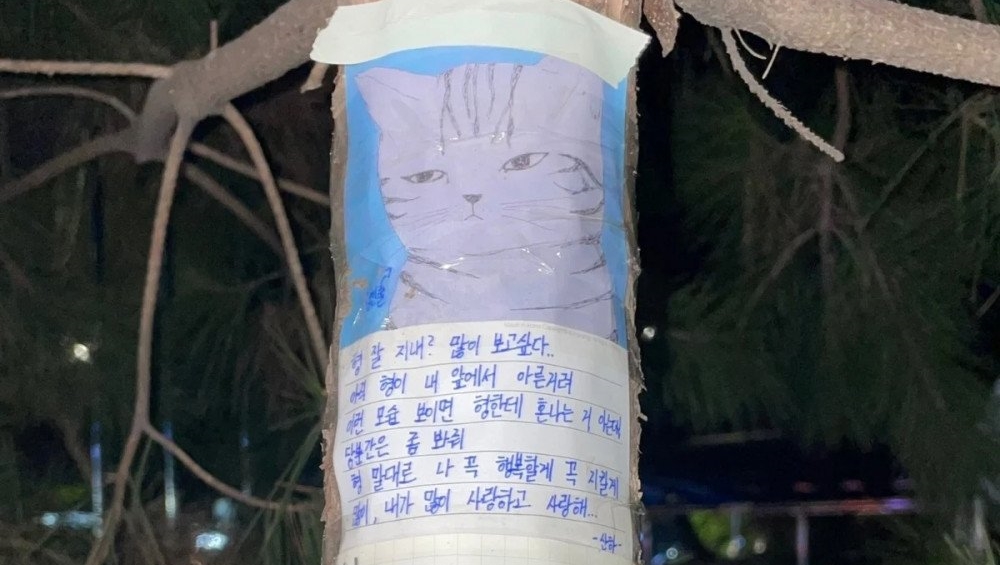 형 잘 지내? 많이 보고싶다..
아직 형이 내 앞에서 아른거려
이런 모습 보이면 형한테 혼나는 거 아는데
당분간은 좀 봐줘
형 말대로 나 꼭 행복할게 꼭 지킬게
내가 많이 사랑하고 사랑해...
-산하-